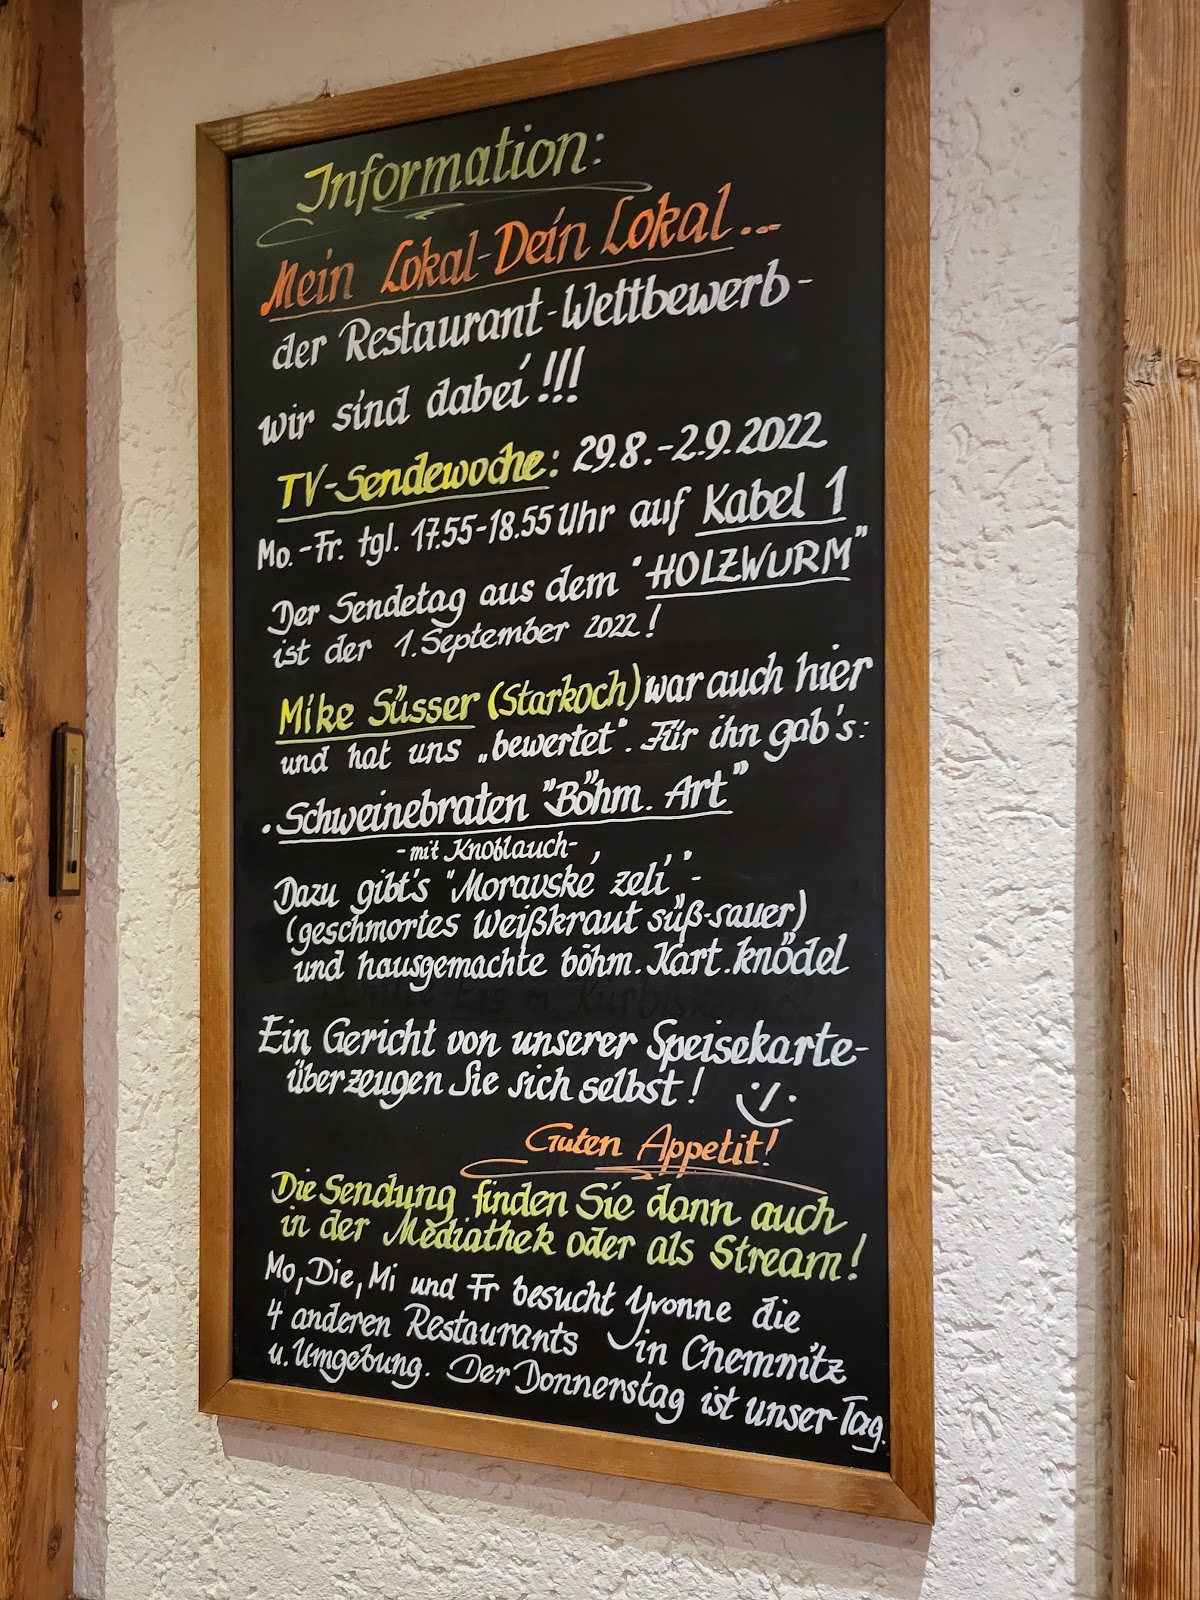 Information:
Mein Lokal-Dein Lokal...
der Restaurant-Wettbewerb-
wir sind dabei!!!
TV-Sendewoche: 29.8.-2.9.2022
Mo.-Fr. tgl. 17.55-18.55 Uhr auf Kabel 1
Der Sendetag aus dem "HOLZWURM"
ist der 1. September 2022!
Mike Süsser (Starkoch) war auch hier
und hat uns „bewertet". Für ihn gab's:
. Schweinebraten "Böhm. Art"
-mit Knoblauch-
Dazu gibt's "Moravské zelí"-
(geschmortes Weißkraut süß-sauer)
und hausgemachte böhm. Kart.knödel
Ein Gericht von unserer Speisekarte-
überzeugen Sie sich selbst!
Guten Appetit!
Die Sendung finden Sie dann auch
in der Mediathek oder als Stream!
Mo, Die, Mi und Fr besucht Yvonne die
4 anderen Restaurants in Chemnitz
u. Umgebung. Der Donnerstag ist unser Tag.